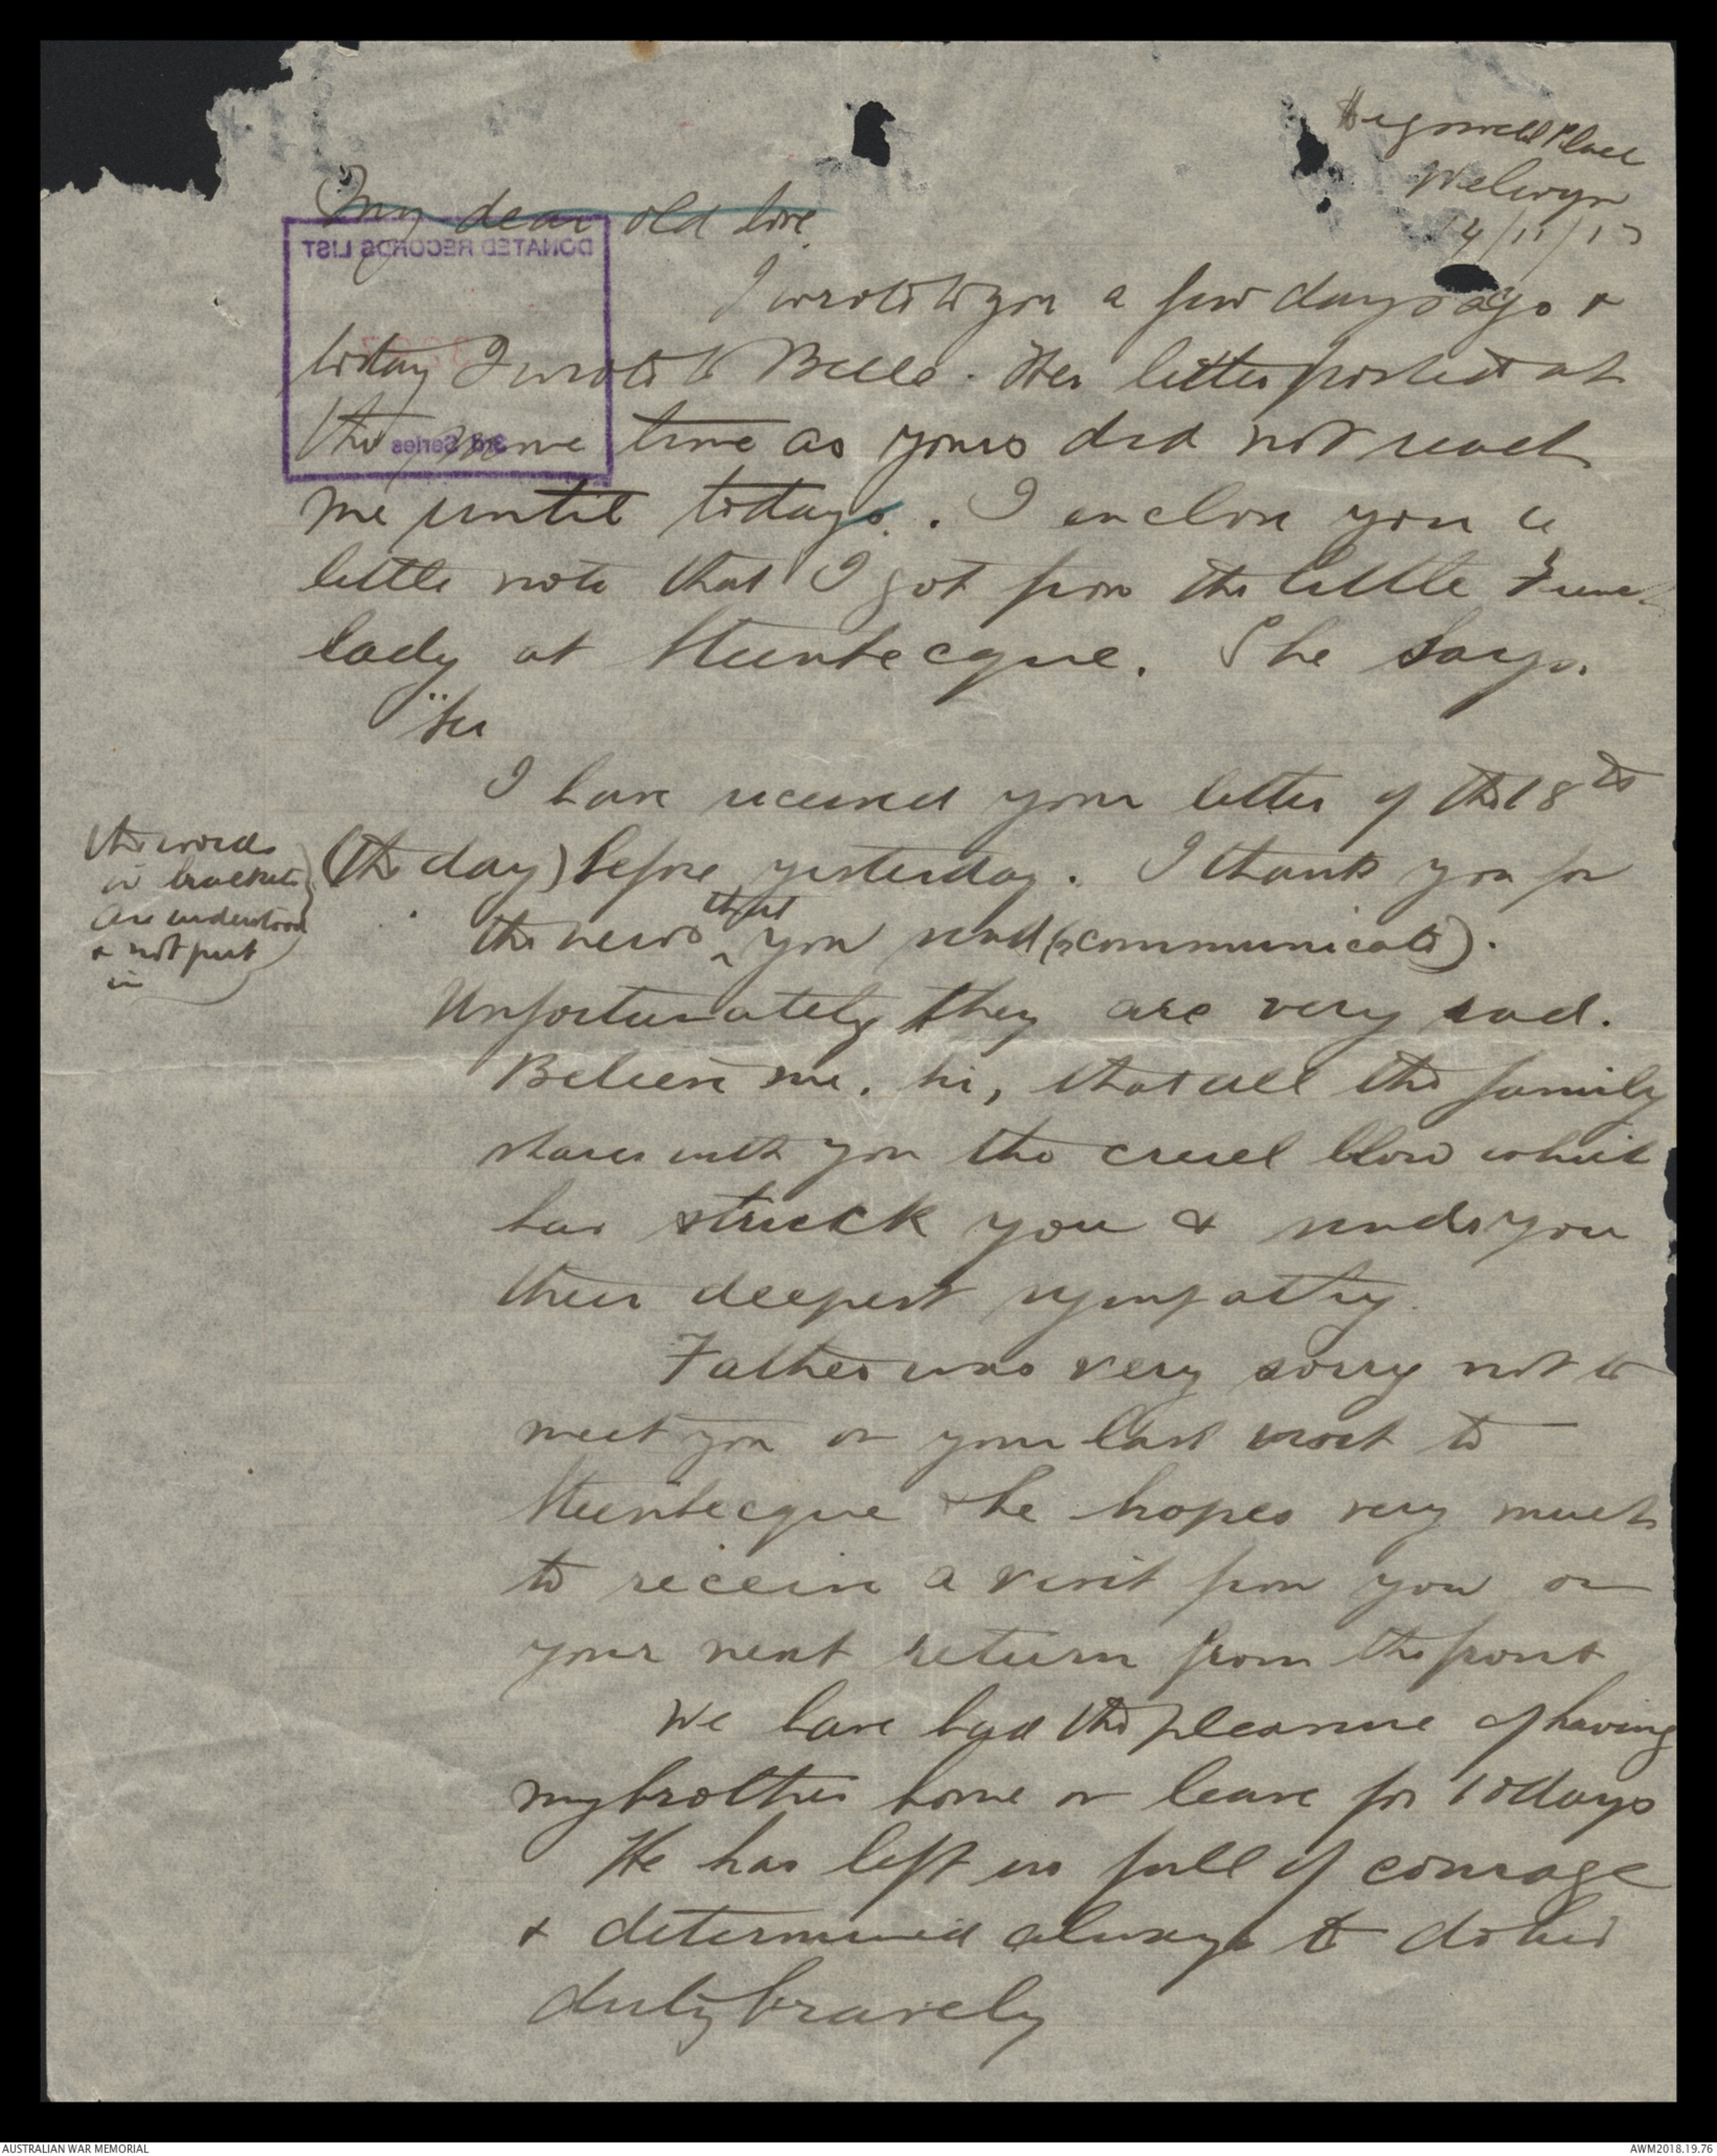 Place
Welwyn
14/11/17
My dear old love,
I wrote to you a few days ago &
today I wrote to Belle. Her letter posted at
the same time as yours did not reach
me until today. I enclose you a
little note that I got from the little French
lady at Steenbecque. She says.
"Sir
I have received your letter of the 18th
(the day) before yesterday. I thank you for
the news that you send (communicate).
the words
in brackets
are understood
& not put
in
Unfortunately they are very sad.
Believe me, Sir, that all the family
shares with you the cruel blow which
has struck you & sends you
their deepest sympathy.
Father was very sorry not to
meet you on your last visit to
Steenbecque & he hopes very much
to receive a visit from you on
your next return from the front
We have had the pleasure of having
my brother home on leave for 10 days
He has left us full of courage
& determined always to do his
duty bravely
DONATED RECORDS LIST
3rd Series
AUSTRALIAN WAR MEMORIAL
AWM2018.19.76